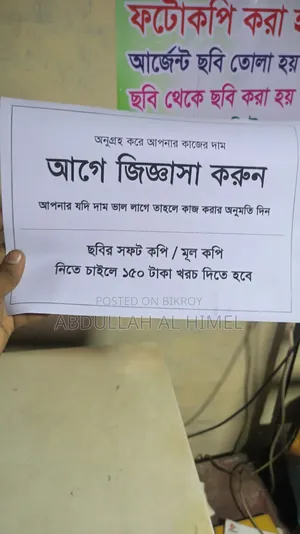 ফটোকপি করা হ
আর্জেন্ট ছবি তোলা হয়
ছবি থেকে ছবি করা হয়
অনুগ্রহ করে আপনার কাজের দাম
আগে জিজ্ঞাসা করুন
আপনার যদি দাম ভাল লাগে তাহলে কাজ করার অনুমতি দিন
ছবির সফট কপি / মূল কপি
নিতে চাইলে ১৫০ টাকা খরচ দিতে হবে
POSTED ON BIKROY
ABDULLAH AL HIMEL